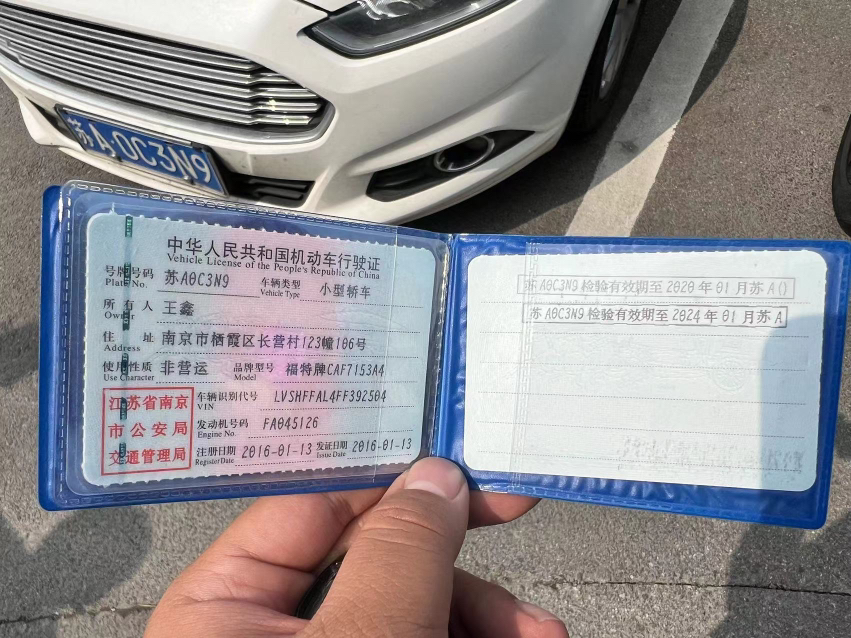 苏A·0C3N9
中华人民共和国机动车行驶证
Vehicle License of the People's Republic of China
号牌号码 苏A0C3N9 车辆类型 小型轿车
Plate No. Vehicle Type
所有人 王鑫
Owner
住址 南京市栖霞区长营村123幢106号
Address
使用性质 非营运 品牌型号 福特牌CAF7153A4
Use Character Model
江苏省南京
市公安局
交通管理局
车辆识别代号 LVSHFFAL4FF392504
VIN
发动机号码 FA045126
Engine No.
注册日期 2016-01-13 发证日期 2016-01-13
Register Date Issue Date
苏A0C3N9检验有效期至2020年01月苏A()
苏A0C3N9检验有效期至2024年01月苏A